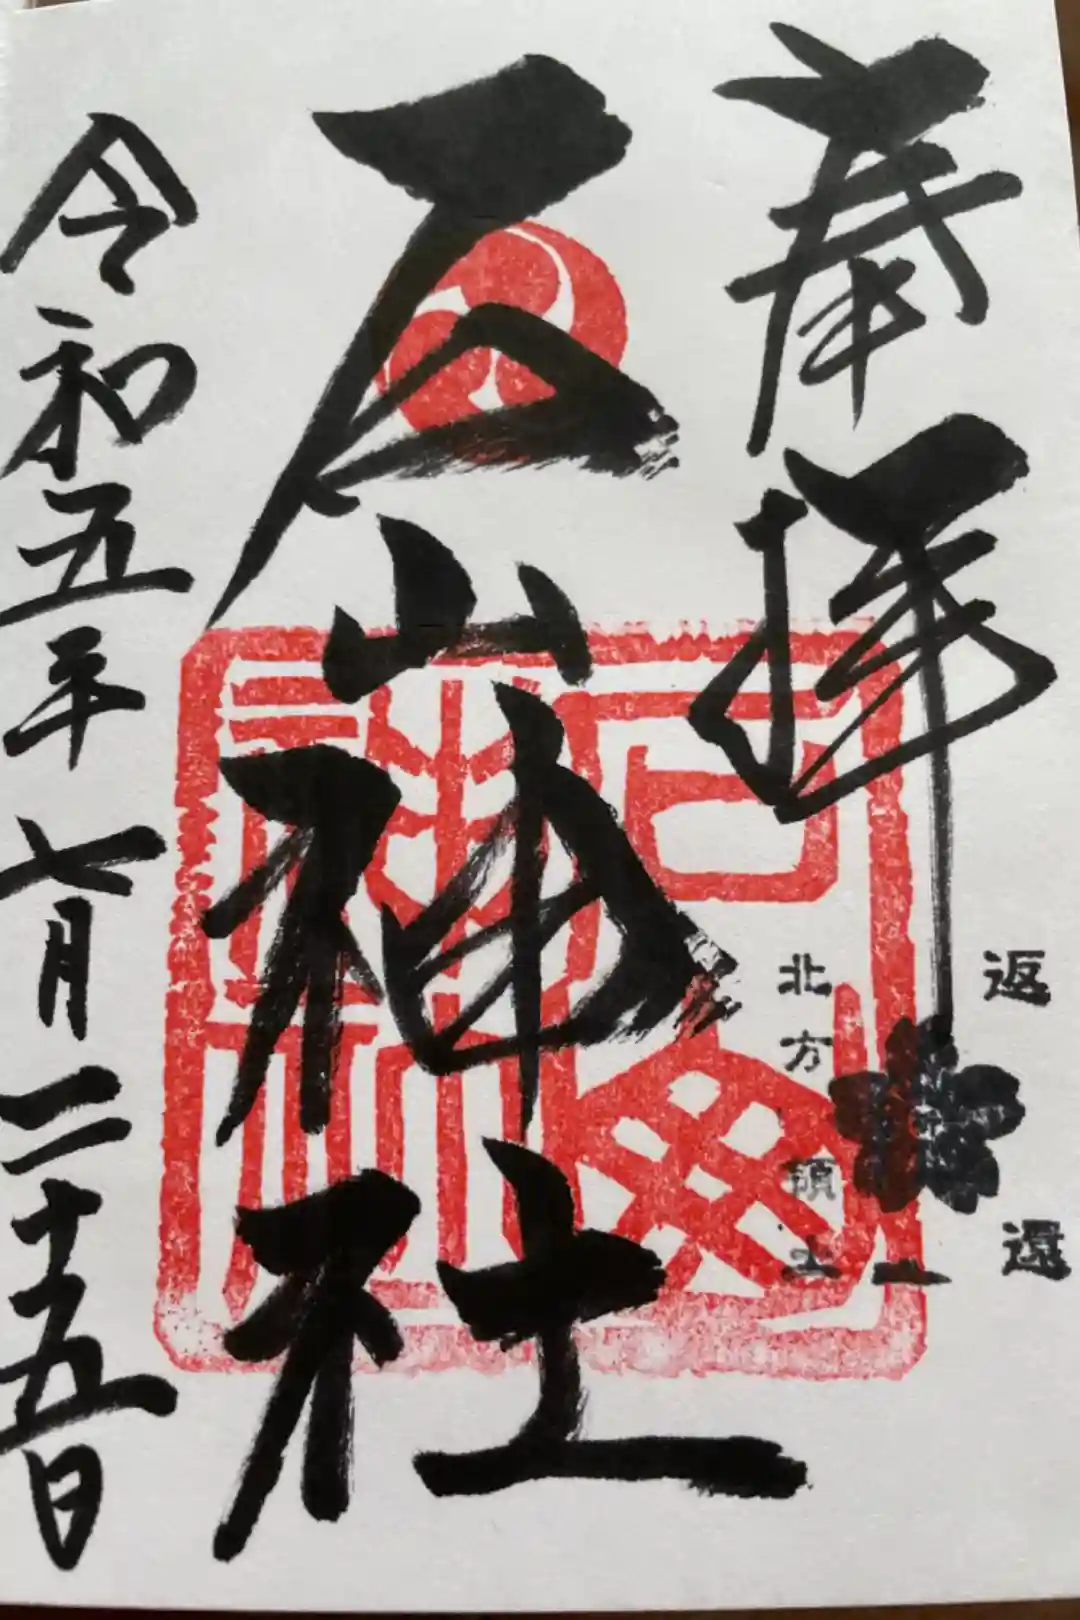 奉拝
返還
北方領土
石山神社
令和五年七月二十五日